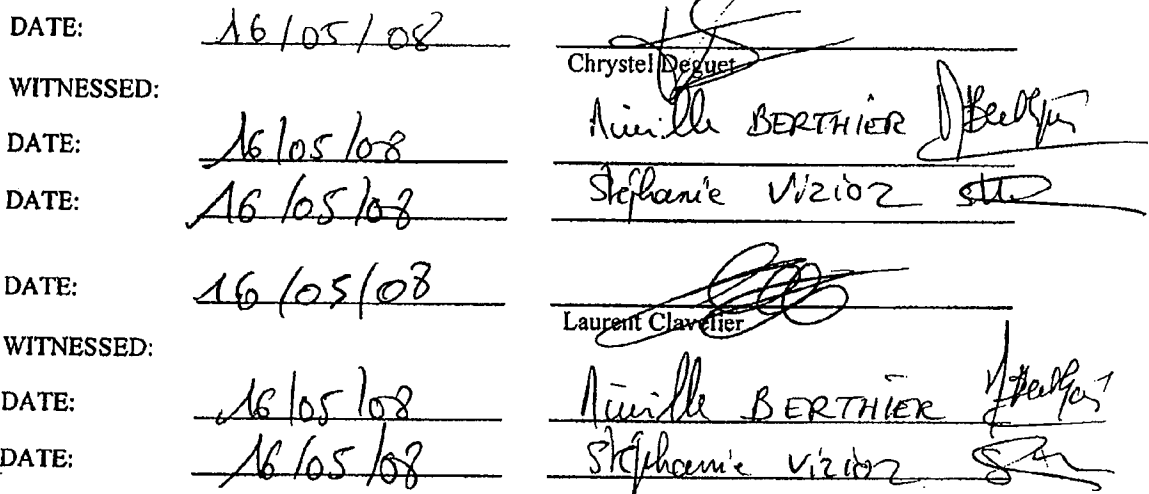 DATE: 16/05/08
Chrystel Deguet
WITNESSED:
DATE: 16/05/08 BERTHIER
DATE: 16/05/08 Stéphanie VIZIOZ
DATE: 16/05/08
Laurent Clavelier
WITNESSED:
DATE: 16/05/08 BERTHIER
DATE: 16/05/08 Stéphanie VIZIOZ